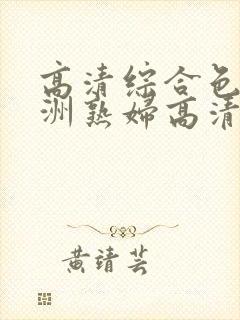 高清综合色
洲熟婦高清
黄靖芸